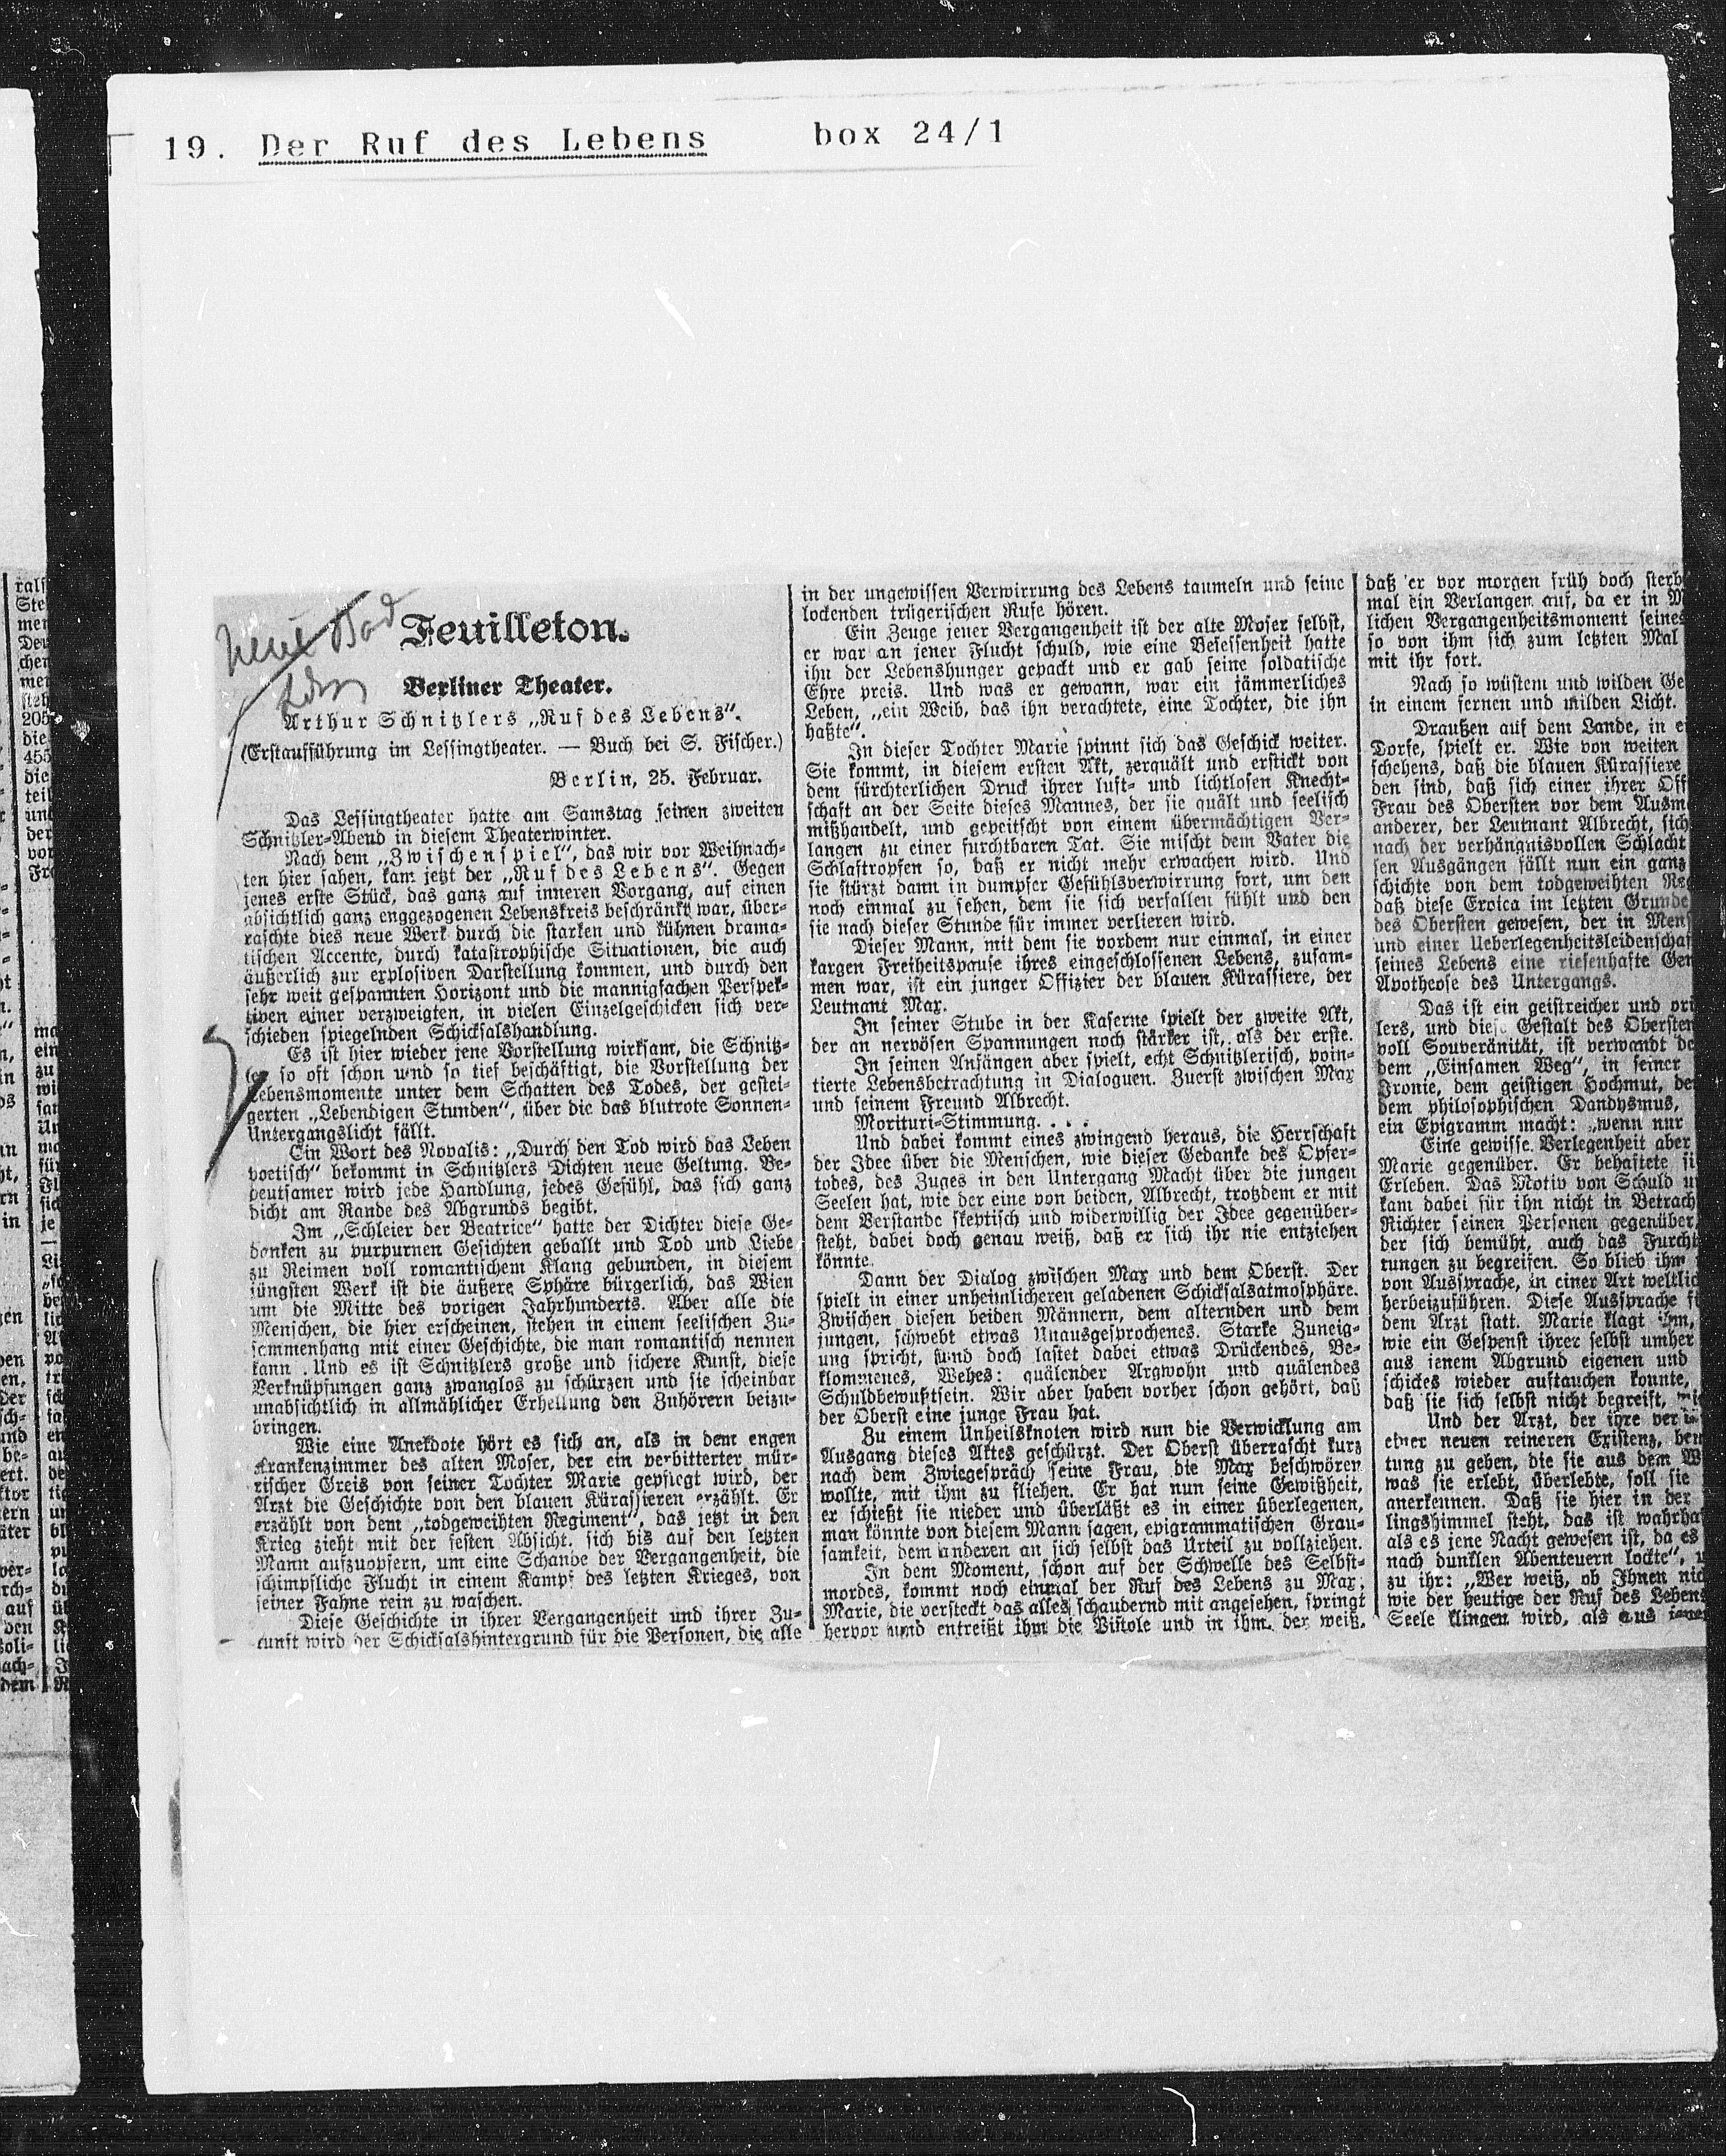 19. Der Ruf des Lebens box 24/1
Neue Bad
Feuilleton.
Berliner Theater.
Arthur Schnitzlers „Ruf des Lebens".
(Erstaufführung im Lessingtheater. — Buch bei S. Fischer.)
Berlin, 25. Februar.
Das Lessingtheater hatte am Samstag seinen zweiten
Schnitzler-Abend in diesem Theaterwinter.
Nach dem „Zwischenspiel", das wir vor Weihnach-
ten hier sahen, kam jetzt der „Ruf des Lebens". Gegen
jenes erste Stück, das ganz auf inneren Vorgang, auf einen
absichtlich ganz enggezogenen Lebenskreis beschränkt war, über-
raschte dies neue Werk durch die starken und kühnen drama-
tischen Accente, durch katastrophische Situationen, die auch
äußerlich zur explosiven Darstellung kommen, und durch den
sehr weit gespannten Horizont und die mannigfachen Perspek-
tiven einer verzweigten, in vielen Einzelgeschicken sich ver-
schieden spiegelnden Schicksalshandlung.
Es ist hier wieder jene Vorstellung wirksam, die Schnitz-
ler so oft schon und so tief beschäftigt, die Vorstellung der
Lebensmomente unter dem Schatten des Todes, der gestei-
gerten „Lebendigen Stunden", über die das blutrote Sonnen-
Untergangslicht fällt.
Ein Wort des Novalis: „Durch den Tod wird das Leben
poetisch" bekommt in Schnitzlers Dichten neue Geltung. Be-
deutsamer wird jede Handlung, jedes Gefühl, das sich ganz
dicht am Rande des Abgrunds begibt.
Im „Schleier der Beatrice" hatte der Dichter diese Ge-
danken zu purpurnen Gesichten geballt und Tod und Liebe
zu Reimen voll romantischem Klang gebunden, in diesem
jüngsten Werk ist die äußere Sphäre bürgerlich, das Wien
um die Mitte des vorigen Jahrhunderts. Aber alle die
Menschen, die hier erscheinen, stehen in einem seelischen Zu-
sammenhang mit einer Geschichte, die man romantisch nennen
kann. Und es ist Schnitzlers große und sichere Kunst, diese
Verknüpfungen ganz zwanglos zu schürzen und sie scheinbar
unabsichtlich in allmählicher Erhellung den Zuhörern beizu-
bringen.
Wie eine Anekdote hört es sich an, als in dem engen
Krankenzimmer des alten Moser, der ein verbitterter mür-
rischer Greis von seiner Tochter Marie gepflegt wird, der
Arzt die Geschichte von den blauen Kürassieren erzählt. Er
erzählt von dem „todgeweihten Regiment", das jetzt in den
Krieg zieht mit der festen Absicht, sich bis auf den letzten
Mann aufzuopfern, um eine Schande der Vergangenheit, die
schimpfliche Flucht in einem Kampf des letzten Krieges, von
seiner Fahne rein zu waschen.
Diese Geschichte in ihrer Vergangenheit und ihrer Zu-
kunft wird der Schicksalshintergrund für die Personen, die alle
in der ungewissen Verwirrung des Lebens taumeln und seine
lockenden trügerischen Rufe hören.
Ein Zeuge jener Vergangenheit ist der alte Moser selbst,
er war an jener Flucht schuld, wie eine Besessenheit hatte
ihn der Lebenshunger gepackt und er gab seine soldatische
Ehre preis. Und was er gewann, war ein jämmerliches
Leben, „ein Weib, das ihn verachtete, eine Tochter, die ihn
haßte".
In dieser Tochter Marie spinnt sich das Geschick weiter.
Sie kommt, in diesem ersten Akt, zerquält und erstickt von
dem fürchterlichen Druck ihrer luft- und lichtlosen Knecht-
schaft an der Seite dieses Mannes, der sie quält und seelisch
mißhandelt, und gepeitscht von einem übermächtigen Ver-
langen zu einer furchtbaren Tat. Sie mischt dem Vater die
Schlaftropfen so, daß er nicht mehr erwachen wird. Und
sie stürzt dann in dumpfer Gefühlsverwirrung fort, um den
noch einmal zu sehen, dem sie sich verfallen fühlt und den
sie nach dieser Stunde für immer verlieren wird.
Dieser Mann, mit dem sie vordem nur einmal, in einer
kargen Freiheitspause ihres eingeschlossenen Lebens, zusam-
men war, ist ein junger Offizier der blauen Kürassiere, der
Leutnant Max.
In seiner Stube in der Kaserne spielt der zweite Akt,
der an nervösen Spannungen noch stärker ist, als der erste.
In seinen Anfängen aber spielt, echt Schnitzlerisch, poin-
tierte Lebensbetrachtung in Dialoguen. Zuerst zwischen Max
und seinem Freund Albrecht.
Morituri-Stimmung. . . .
Und dabei kommt eines zwingend heraus, die Herrschaft
der Idee über die Menschen, wie dieser Gedanke des Opfer-
todes, des Zuges in den Untergang Macht über die jungen
Seelen hat, wie der eine von beiden, Albrecht, trotzdem er mit
dem Verstande skeptisch und widerwillig der Idee gegenüber-
steht, dabei doch genau weiß, daß er sich ihr nie entziehen
könnte.
Dann der Dialog zwischen Max und dem Oberst. Der
spielt in einer unheimlicheren geladenen Schicksalsatmosphäre.
Zwischen diesen beiden Männern, dem alternden und dem
jungen, schwebt etwas Unausgesprochenes. Starke Zuneig-
ung spricht, und doch lastet dabei etwas Drückendes, Be-
klommenes, Wehes: quälender Argwohn und quälendes
Schuldbewußtsein. Wir aber haben vorher schon gehört, daß
der Oberst eine junge Frau hat.
Zu einem Unheilsknoten wird nun die Verwicklung am
Ausgang dieses Aktes geschürzt. Der Oberst überrascht kurz
nach dem Zwiegespräch seine Frau, die Max beschwören
wollte, mit ihm zu fliehen. Er hat nun seine Gewißheit,
er schießt sie nieder und überläßt es in einer überlegenen,
man könnte von diesem Mann sagen, epigrammatischen Grau-
samkeit, dem anderen an sich selbst das Urteil zu vollziehen.
In dem Moment, schon auf der Schwelle des Selbst-
mordes, kommt noch einmal der Ruf des Lebens zu Max;
Marie, die versteckt das alles schaudernd mit angesehen, springt
hervor und entreißt ihm die Pistole und in ihm, der weiß,
daß er vor morgen früh doch sterb
mal ein Verlangen auf, da er in M
lichen Vergangenheitsmoment seines
so von ihm sich zum letzten Mal
mit ihr fort.
Nach so wüstem und wilden Ge
in einem fernen und milden Licht.
Draußen auf dem Lande, in e
Dorfe, spielt er. Wie von weiten
schehens, daß die blauen Kürassiere
den sind, daß sich einer ihrer Off
Frau des Obersten vor dem Ausm
anderer, der Leutnant Albrecht, sich
nach der verhängnisvollen Schlacht
sen Ausgängen fällt nun ein ganz
schichte von dem todgeweihten Reg
daß diese Eroica im letzten Grunde
des Obersten gewesen, der in Mens
und einer Ueberlegenheitsleidenschaf
seines Lebens eine riesenhafte Gen
Apotheose des Untergangs.
Das ist ein geistreicher und ori
lers, und diese Gestalt des Obersten
voll Souveränität, ist verwandt de
dem „Einsamen Weg", in seiner
Ironie, dem geistigen Hochmut, de
dem philosophischen Dandysmus,
ein Epigramm macht: „wenn nur
Eine gewisse Verlegenheit aber
Marie gegenüber. Er behaftete si
Erleben. Das Motiv von Schuld u
kam dabei für ihn nicht in Betrach
Richter seinen Personen gegenüber,
der sich bemüht, auch das Furcht
tungen zu begreifen. So blieb ihm
von Aussprache, in einer Art weltlic
herbeizuführen. Diese Aussprache fi
dem Arzt statt. Marie klagt ihm,
wie ein Gespenst ihrer selbst umher
aus jenem Abgrund eigenen und
schickes wieder auftauchen konnte,
daß sie sich selbst nicht begreift,
Und der Arzt, der ihre
einer neuen reineren Existenz,
tung zu geben, die sie aus dem W
was sie erlebt, überlebte, soll sie
anerkennen. Daß sie hier in der
lingshimmel steht, das ist wahrha
als es jene Nacht gewesen ist, da es
nach dunklen Abenteuern lockte", u
zu ihr: „Wer weiß, ob Ihnen nic
wie der heutige der Ruf des Lebens
Seele klingen wird, als aus jener